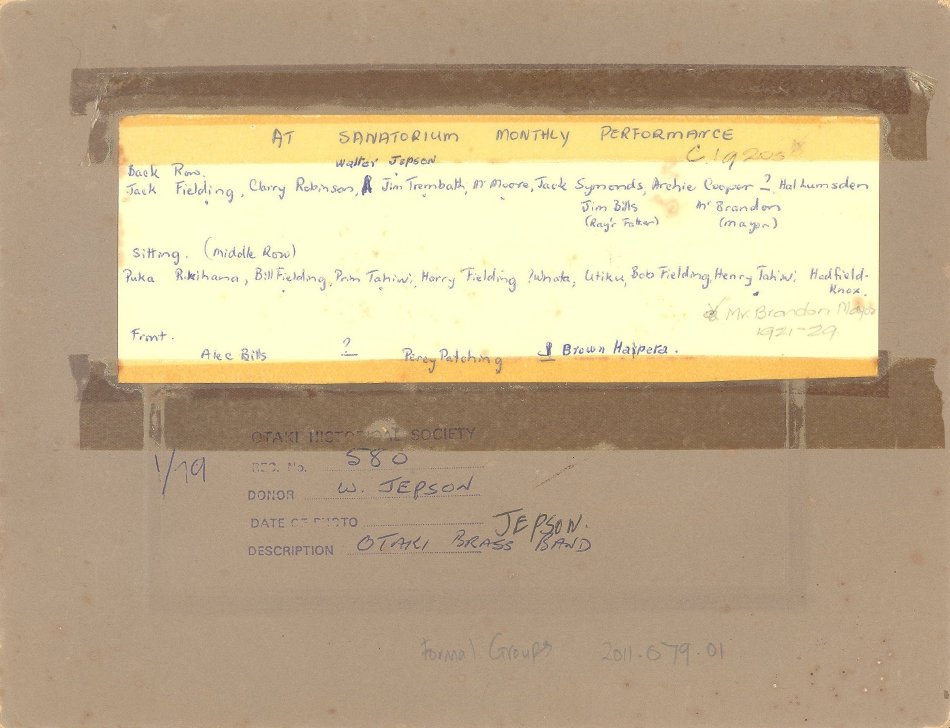 AT SANATORIUM MONTHLY PERFORMANCE
C. 1920s
Walter Jepson
Back Row.
Jack Fielding, Clarry Robinson, Jim Trembath, Mr Moore, Jack Symonds, Archie Cooper ?, Hal Lumsden
Jim Bills Mr Brandon
(Ray's Father) (mayor)
Sitting. (Middle Row)
Puka Rikihana, Bill Fielding, Prim Tahiwi, Harry Fielding ?Whata, Utiku, Bob Fielding, Henry Tahiwi, Hadfield-
Knox.
Mr. Brandon Mayor
1921-29
Front.
Alec Bills ? Percy Patching Brown Haipera.
OTAKI HISTORICAL SOCIETY
1/79
REG. No. 580
DONOR W. JEPSON
DATE OF PHOTO JEPSON.
DESCRIPTION OTAKI BRASS BAND
Formal Groups 2011.079.01